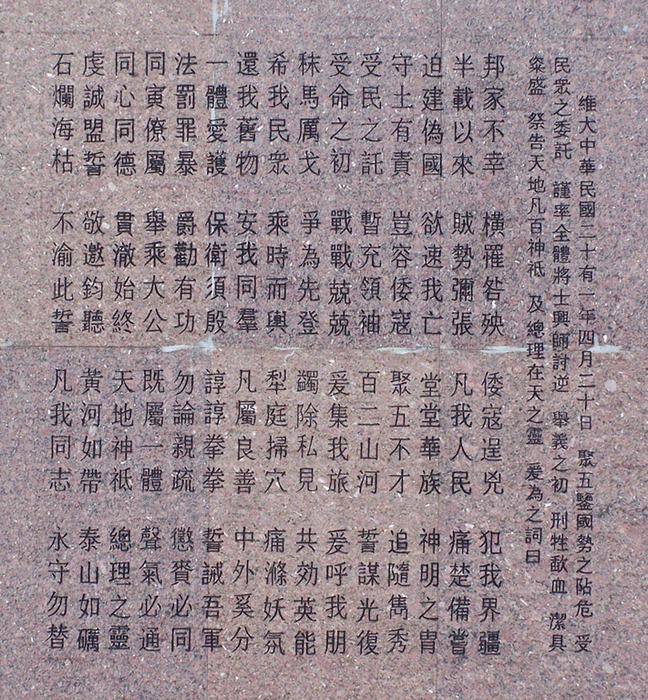 維大中華民國二十有一年四月二十日 聚五鑒國勢之阽危 受
民眾之委託 謹率全體將士興師討逆 舉義之初 刑牲歃血 潔具
粢盛 祭告天地凡百神祇 及總理在天之靈 爰為之詞曰
邦家不幸 橫罹咎殃 倭寇逞兇 犯我界疆
半載以來 賊勢彌張 凡我人民 痛楚備嘗
迫建偽國 欲速我亡 堂堂華族 神明之胄
守土有責 豈容倭寇 聚五不才 追隨雋秀
受民之託 暫充領袖 百二山河 誓謀光復
受命之初 戰戰兢兢 爰集我旅 爰呼我朋
秣馬厲戈 爭為先登 蠲除私見 共効英能
希我民眾 乘時而輿 犁庭掃穴 痛滌妖氛
還我舊物 安我同羣 凡屬良善 中外奚分
一體愛護 保衛須殷 諄諄拳拳 誓誡吾軍
法罰罪暴 爵勸有功 勿論親疏 懲賚必同
同寅僚屬 舉乘大公 既屬一體 聲氣必通
同心同德 貫澈始終 天地神祇 總理之靈
虔誠盟誓 敬邀鈞聽 黃河如帶 泰山如礪
石爛海枯 不渝此誓 凡我同志 永守勿替